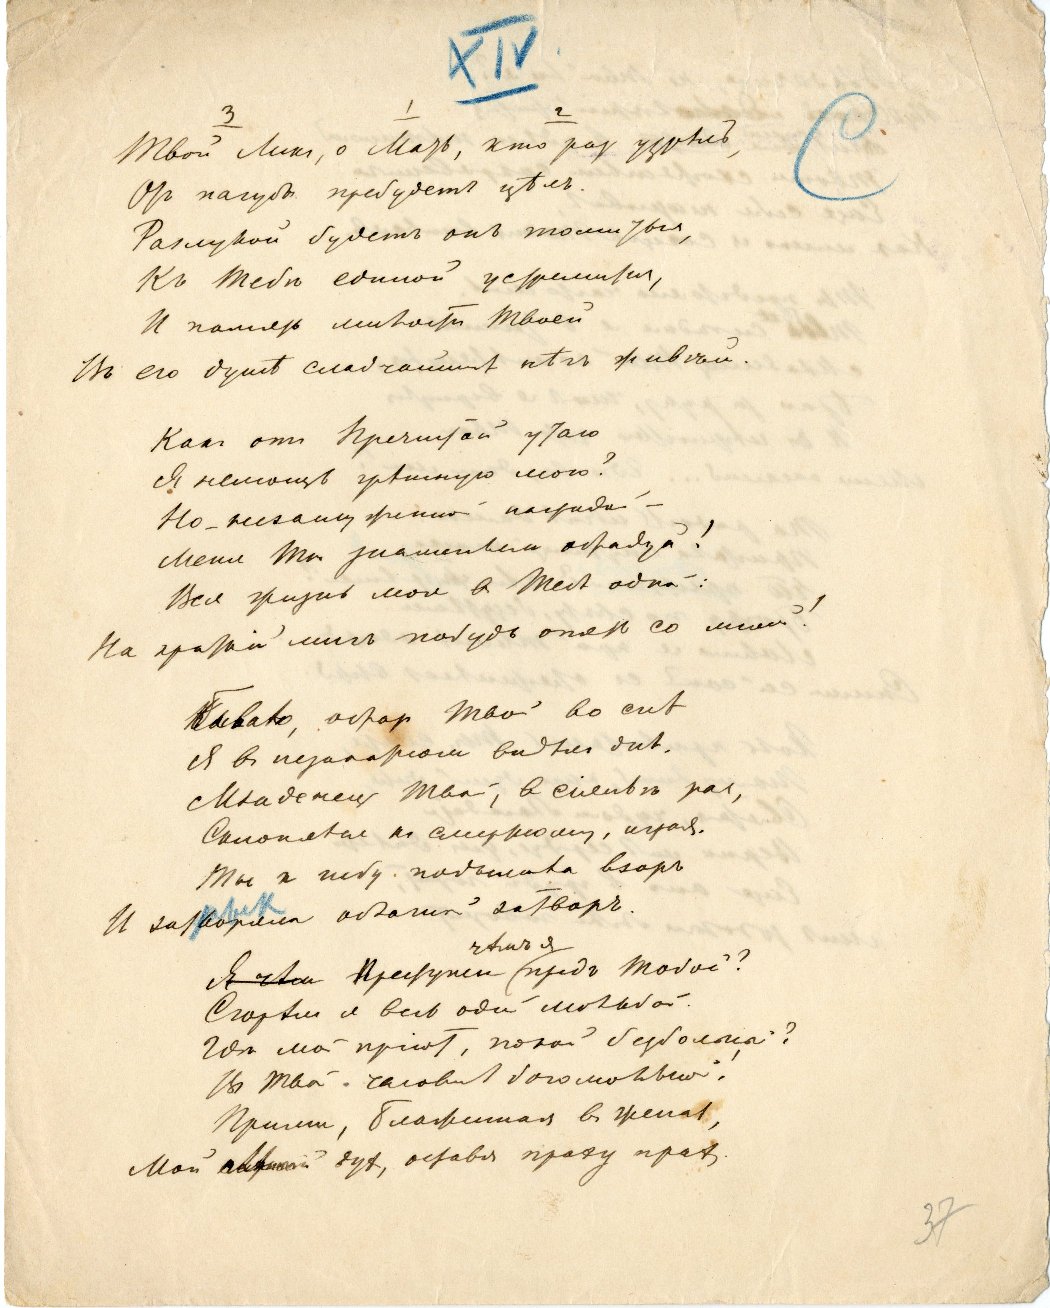 XIV
С.
3 1 2
Твой Ликъ, о Мать, кто разъ узрѣлъ,
Отъ пагубы пребудетъ цѣлъ.
Разлукой будетъ онъ томиться,
Къ Тебѣ единой устремится,
И память милости Твоей
Въ его душѣ сладчайшей пѣть живѣй.
Какъ отъ Пречистой утаю
Я немощь грѣшную мою?
Но незаслуженной наградой
Меня Ты знаменьемъ обрадуй!
Вся жизнь моя въ Тебѣ одной:
На краткій мигъ побудь опять со мной!
Бываю, образъ Твой во снѣ
Я въ незакатномъ видѣлъ днѣ.
Младенецъ Твой, въ сіяньѣ рая,
Склонялся къ смертному, играя.
Ты къ небу подымала взоръ
И затворяла облачный затворъ.
чѣмъ я
Я чѣмъ Преступенъ предъ Тобой?
Сгораю я весь одной мольбой.
Гдѣ мой пріютъ, покой безбольный?
Въ Твоей часовнѣ богомольной!
Прими, Блаженная въ женахъ,
Мой духъ, оставя праху прахъ.
37